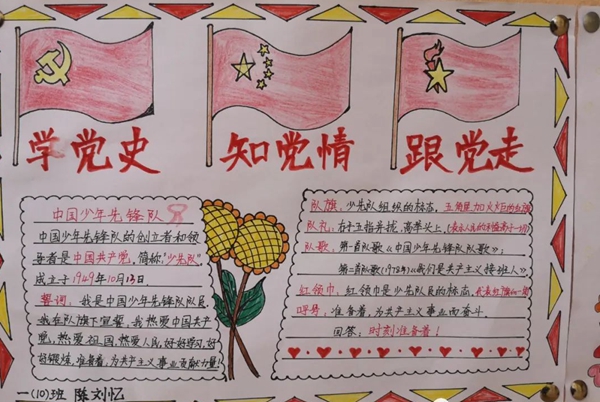 学党史 知党情 跟党走
中国少年先锋队
中国少年先锋队的创立者和领
导者是中国共产党，简称"少先队"
成立于1949年10月13日.
誓词：我是中国少年先锋队队员
我在队旗下宣誓，我热爱中国共产
党，热爱祖国，热爱人民，好好学习，好
好锻炼，准备着，为共产主义事业贡献力量！
队旗：少先队组织的标志，五角星加火炬的
队礼：右手五指并拢，高举头上，
队歌：第一首队歌《中国少年先锋队队歌》；
第二首队歌(1978年)《我们是共产主义接班人》
红领巾：红领巾是少先队员的标志，
呼号：准备着，为共产主义事业而奋斗
回答：时刻准备着！
一(10)班 陈刘忆